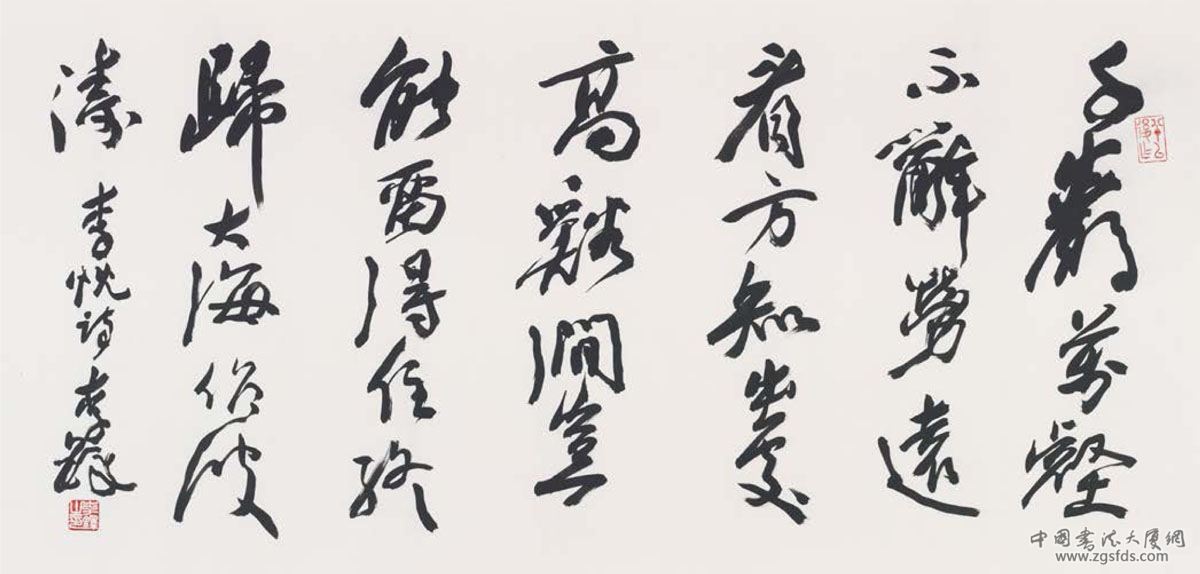 千巖萬壑
不辭勞遠
看方知出處
高谿澗豈
能留得住終
歸大海作波
濤 李忱詩 李鐸
中國書法大廈網
www.zgsfds.com